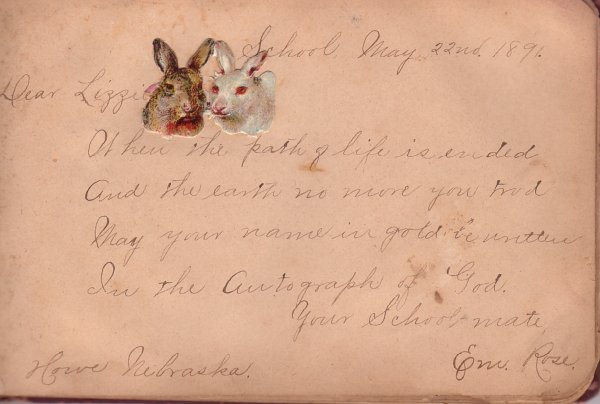 School, May 22nd. 1891.
Dear Lizzie
When the path of life is ended
And the earth no more you trod
May your name in gold be written
In the Autograph of God.
Your School-mate
Howe Nebraska. Em. Rose.